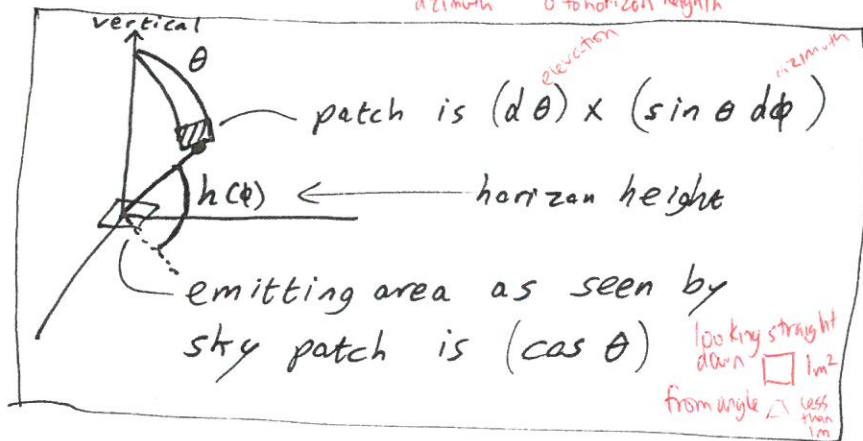 azimuth 0 to horizon height
vertical
θ
elevation
azimuth
patch is (dθ) x (sin θ dϕ)
h(ϕ)
horizon height
emitting area as seen by
sky patch is (cos θ)
looking straight
down 1m²
from angle less
than
1m